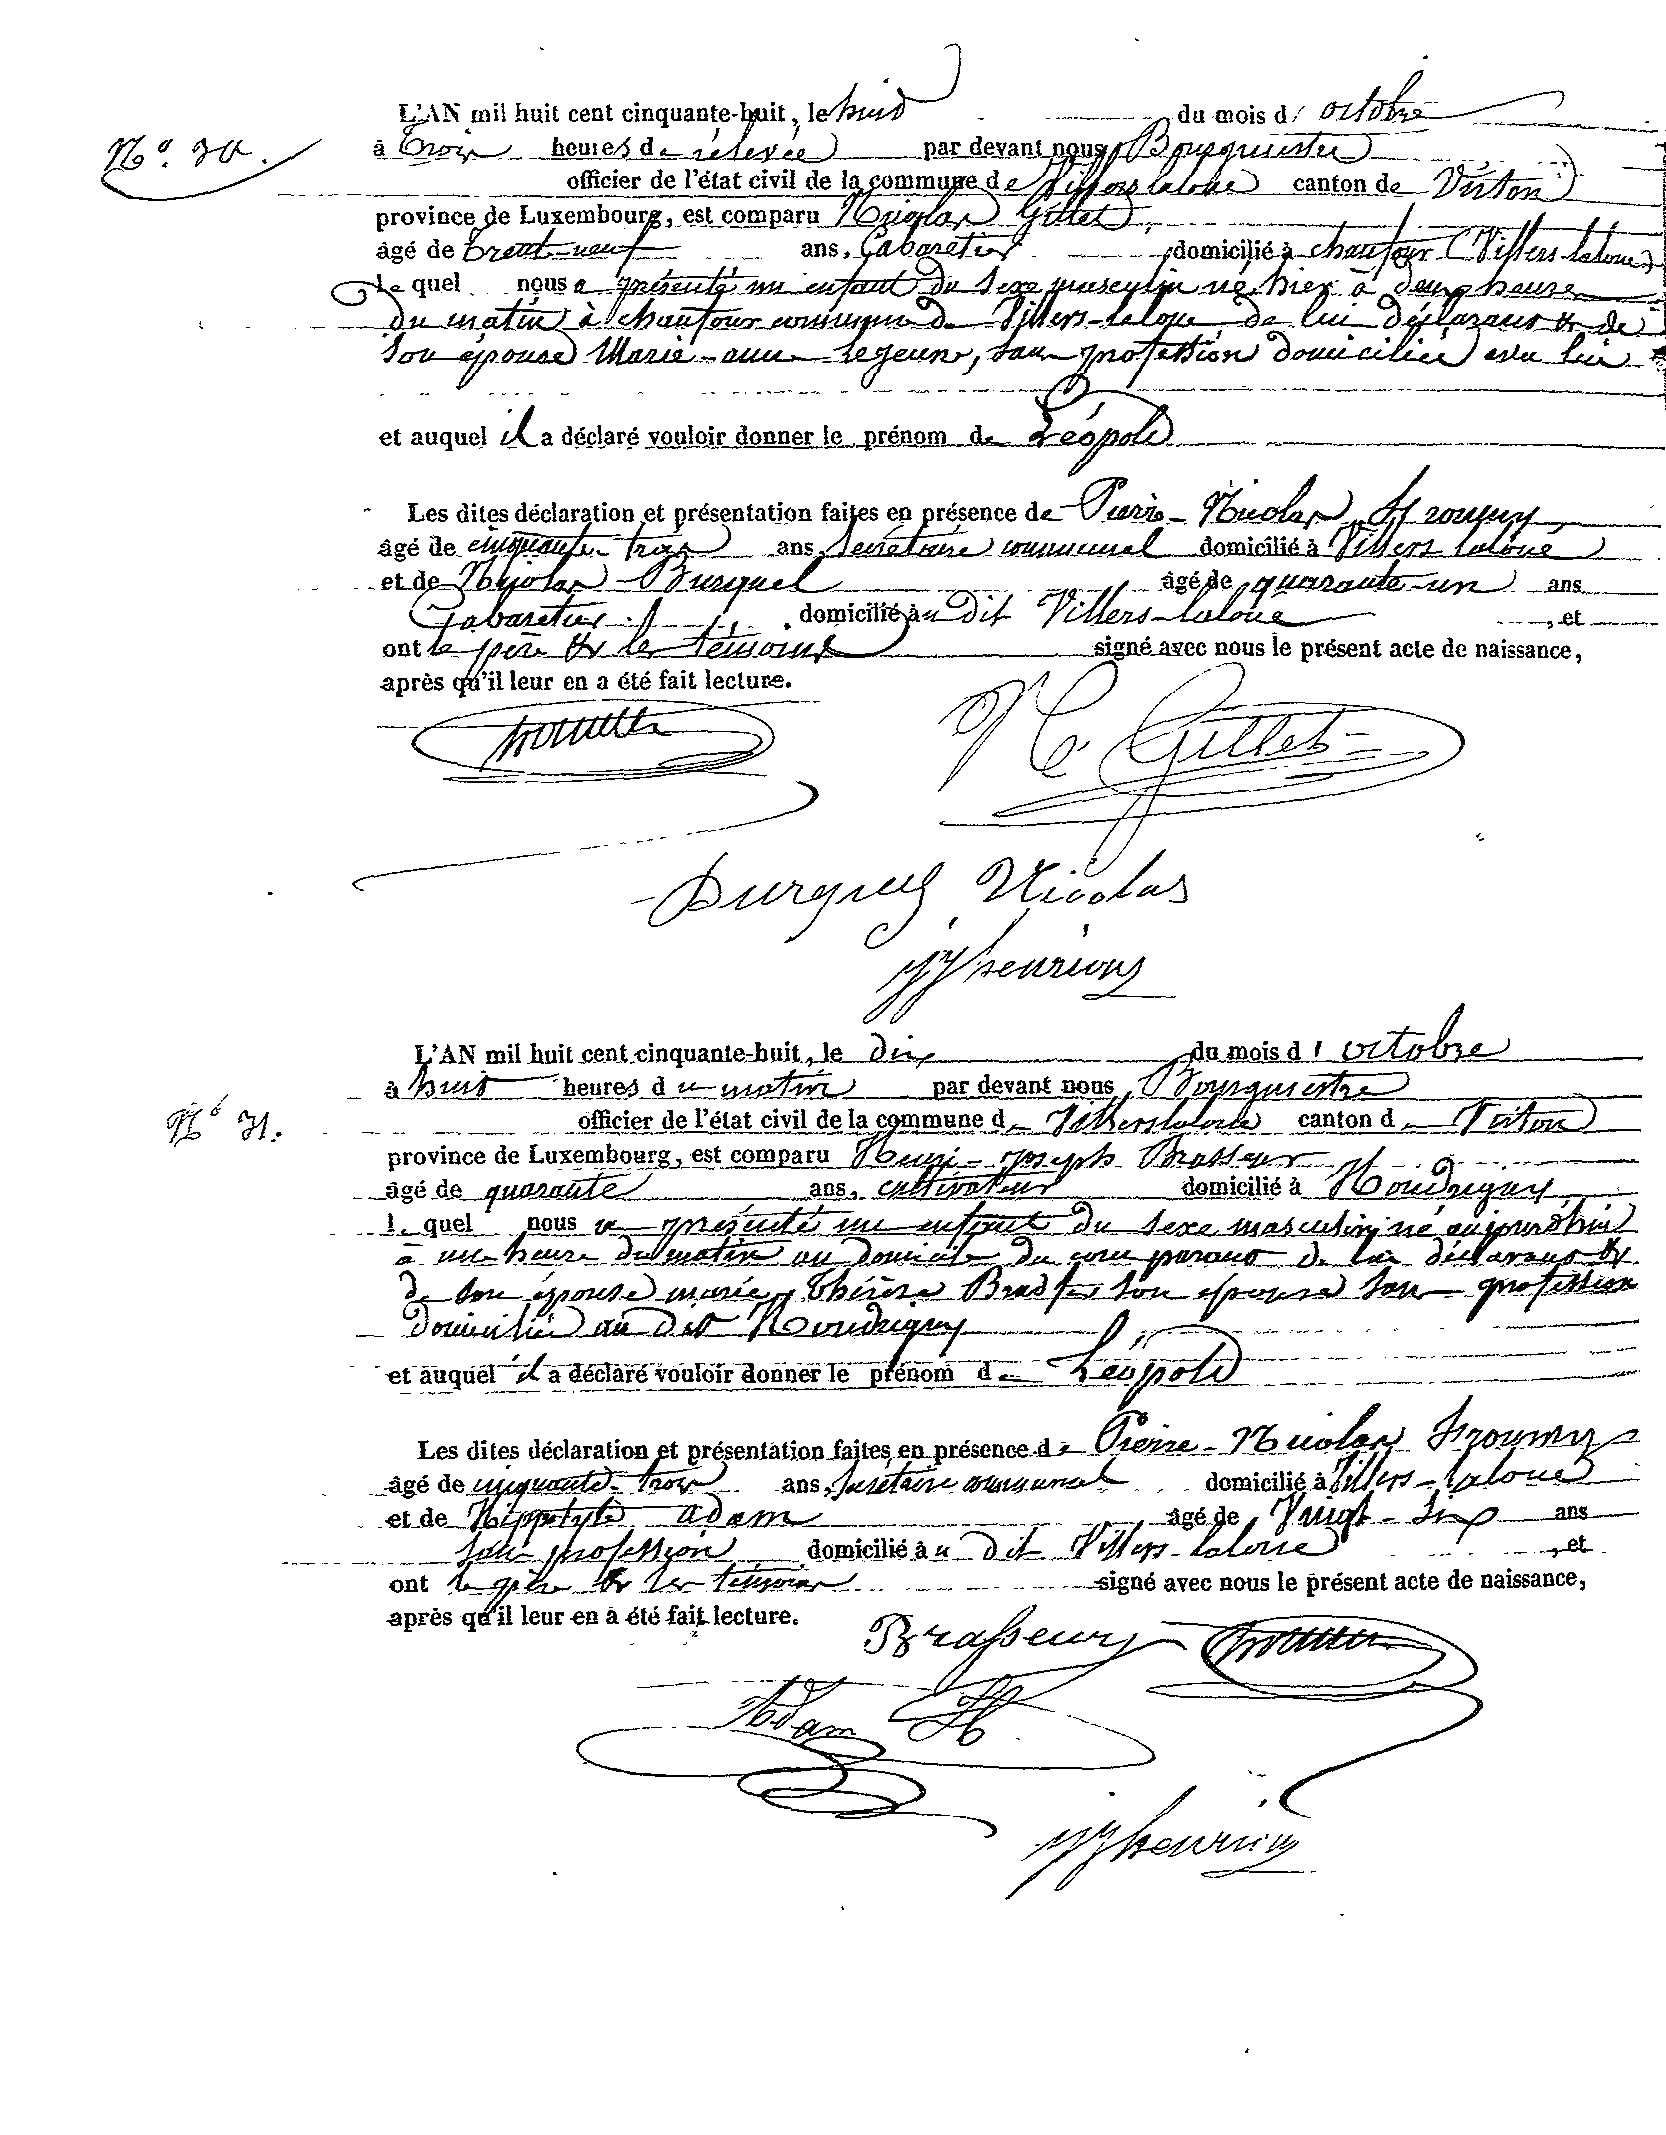 L'AN mil huit cent cinquante-huit, le huit du mois d' octobre
N° 30. à trois heures de relevée par devant nous Bourgmestre
officier de l'état civil de la commune de Villers laloue canton de Virton
province de Luxembourg, est comparu Nicolas Gillet
âgé de trente-neuf ans, Cabaretier domicilié à chaufour (Villers-laloue)
le quel nous a présenté un enfant du sexe masculin né hier à deux heures
du matin à chaufour commune de Villers-laloue, de lui déclarant & de
son épouse Marie-anne Lejeune, sans profession domiciliée avec lui
et auquel il a déclaré vouloir donner le prénom de Léopold
Les dites déclaration et présentation faites en présence de Pierre-Nicolas
âgé de cinquante-trois ans, secrétaire communal domicilié à Villers laloue
et de Nicolas Burquel âgé de quarante-un ans
Cabaretier domicilié au dit Villers-laloue, et
ont le père & les témoins signé avec nous le présent acte de naissance,
après qu'il leur en a été fait lecture.
N Gillet
Burquel Nicolas
JJ henrion
L'AN mil huit cent cinquante-huit, le dix du mois d' octobre
à huit heures du matin par devant nous, Bourgmestre
N° 31. officier de l'état civil de la commune de Villers laloue canton de Virton
province de Luxembourg, est comparu Henri-Joseph Brasseur
âgé de quarante ans, cultivateur domicilié à Houdrigny
le quel nous a présenté un enfant du sexe masculin né aujourdhui
à une heure du matin au domicile du comparant de lui déclarant &
de son épouse marie Thérèse son épouse sans profession
domiciliée au dit Houdrigny
et auquel il a déclaré vouloir donner le prénom de Léopold
Les dites déclaration et présentation faites en présence de Pierre-Nicolas
âgé de cinquante-trois ans, secrétaire communal domicilié à Villers-laloue
et de Hippolyte adam âgé de Vingt-six ans
sans profession domicilié au dit Villers-laloue, et
ont le père & les témoins signé avec nous le présent acte de naissance,
après qu'il leur en a été fait lecture.
Brasseur
Adam H
JJ henrion